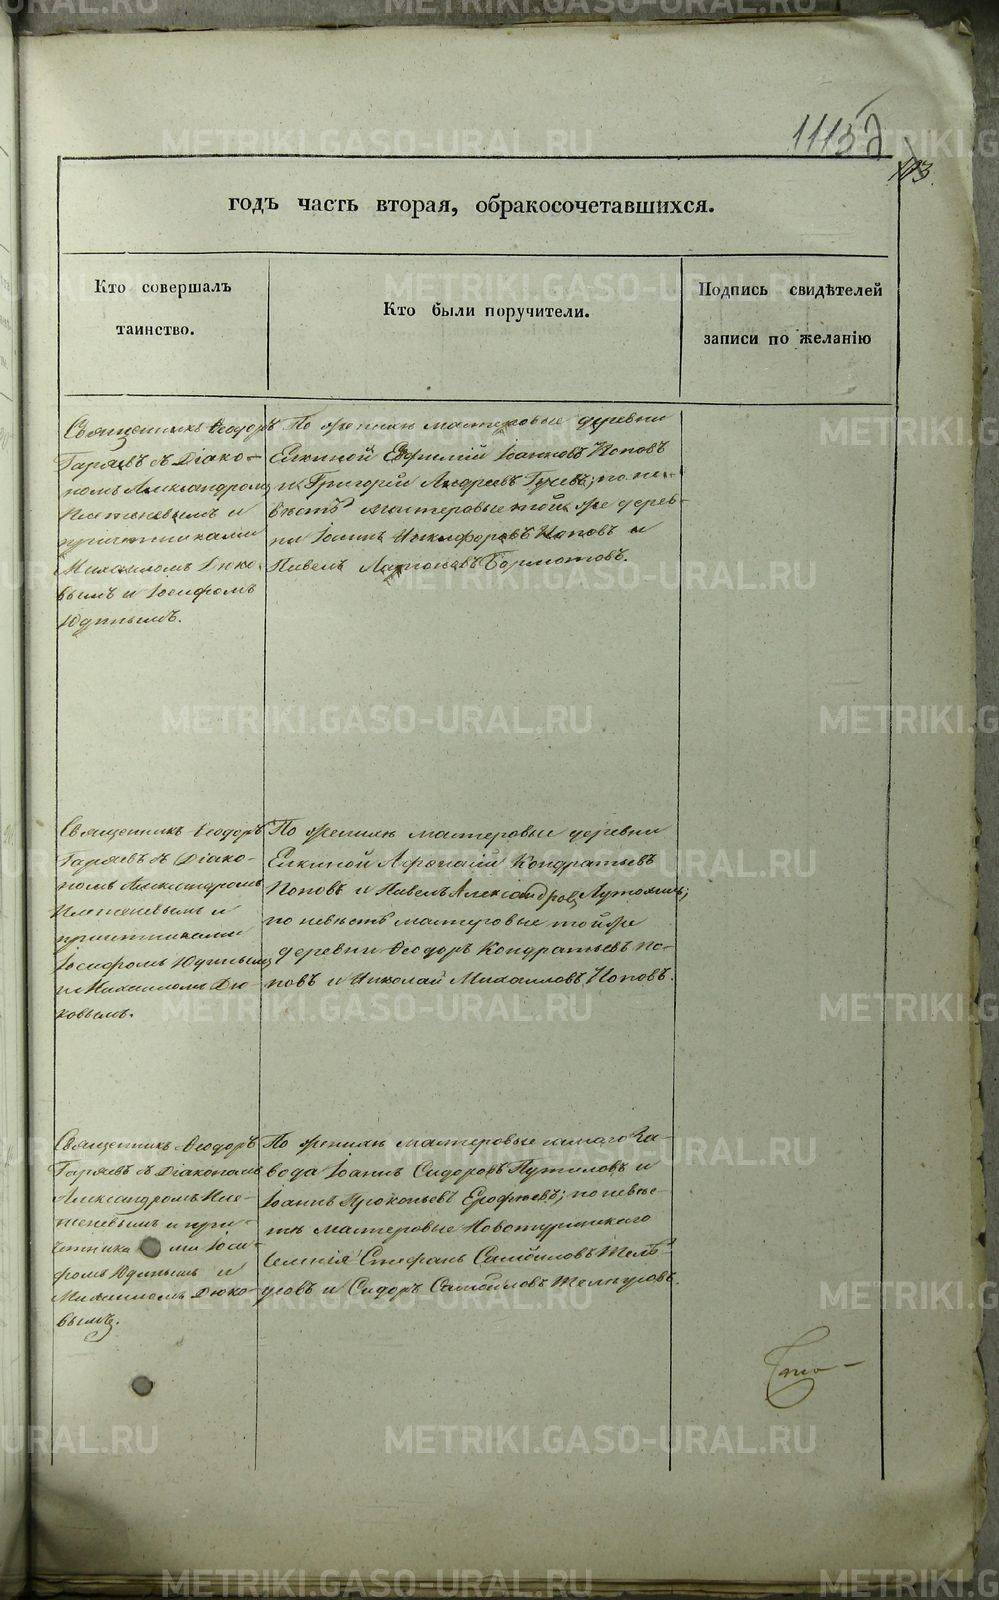 113.
годъ часть вторая, обракосочетавшихся.
Кто совершалъ
таинство.
Кто были поручители.
Подпись свидѣтелей
записи по желанію
Священникъ Ѳеодоръ
Гаряевъ съ Діако-
номъ Александромъ
Плотеневымъ и
причетниками
Михаиломъ Дюко-
вымъ и Іосифомъ
Юдинымъ.
По женихѣ мастеровые деревни
Елкиной Евфимій Іоанновъ Поповъ
и Григорій Андреевъ Гуевъ; по не-
вѣстѣ мастеровые той же дерев-
ни Іоаннъ Никифоровъ Поповъ и
Павелъ Бормотовъ.
Священникъ Ѳеодоръ
Гаряевъ съ Діако-
номъ Александромъ
Плотеневымъ и
причетниками
Іосифомъ Юдинымъ
и Михаиломъ Дю-
ковымъ.
По женихѣ мастеровые деревни
Елкиной Аѳонасій Кондратьевъ
Поповъ и Павелъ Александровъ
по невѣстѣ мастеровые той же
деревни Ѳеодоръ Кондратьевъ По-
повъ и Николай Михаиловъ Поповъ.
Священникъ Ѳеодоръ
Гаряевъ съ Діакономъ
Александромъ Пло-
теневымъ и при-
четниками Іоси-
фомъ Юдинымъ и
Михаиломъ Дюко-
вымъ.
По женихѣ мастеровые самаго За-
вода Іоаннъ Сидоровъ Путиловъ и
Іоаннъ Прокопьевъ Ерофѣевъ; по невѣс-
тѣ мастеровые Новотуринскаго
селенія Стефанъ Самойловъ
и Сидоръ Самойловъ
METRIKI.GASO-URAL.RU